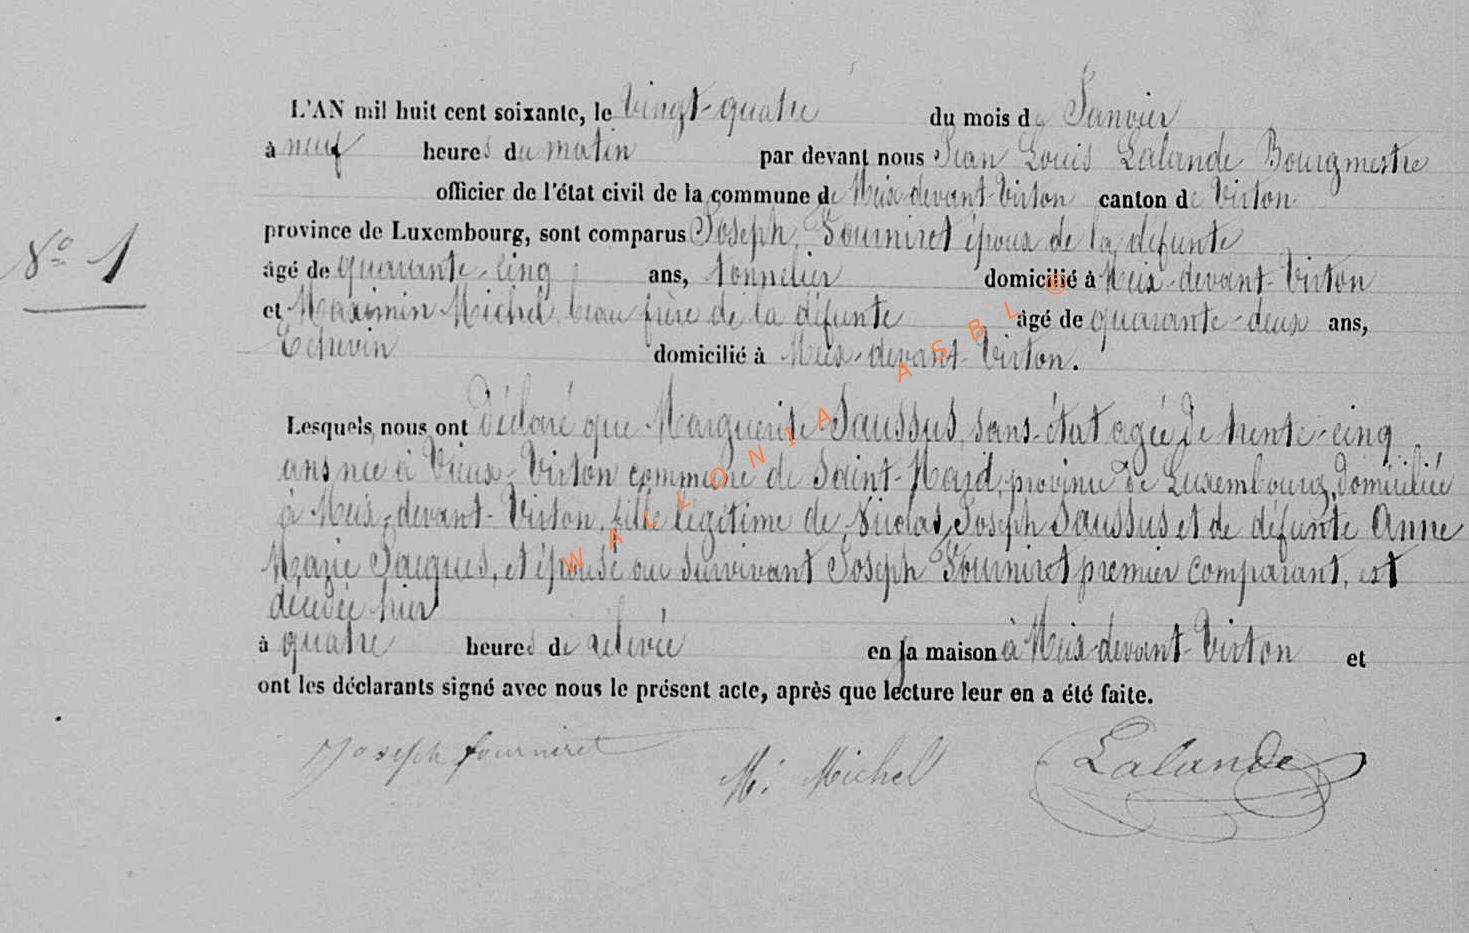 L'AN mil huit cent soixante, le Vingt-quatre du mois de Janvier
à neuf heures du matin par devant nous Jean Louis Lalande Bourgmestre
officier de l'état civil de la commune de Meix-devant-Virton canton de Virton
province de Luxembourg, sont comparus Joseph Fourniret époux de la défunte
N° 1
âgé de quarante-cinq ans, tonnelier domicilié à Meix-devant-Virton
et Maximin Michel beau frère de la défunte âgé de quarante-deux ans,
Echevin domicilié à Meix-devant-Virton.
Lesquels nous ont Déclaré que Marguerite Saussus, sans état agée de trente-cinq
ans née à Vieux-Virton commune de Saint-Mard, province de Luxembourg, domiciliée
à Meix-devant-Virton, fille légitime de Nicolas Joseph Saussus et de défunte Anne
Marie Jacques, et épouse au survivant Joseph Fourniret premier comparant, est
décédée hier
à quatre heures de relevée en sa maison à Meix-devant-Virton et
ont les déclarants signé avec nous le présent acte, après que lecture leur en a été faite.
Joseph fourniret
M. Michel
Lalande
WALLONIA ASBL @